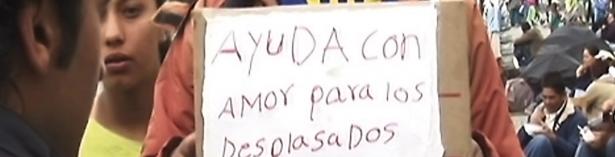 AYUDA con
AMOr para los
Desplasados